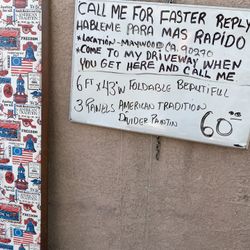 CALL ME FOR FASTER REPLY
HABLEME PARA MAS RAPIDO
*LOCATION-MAYWOOD CA. 90270
*COME TO MY DRIVEWAY WHEN
YOU GET HERE AND CALL ME
6 FT X 43"W FOLDABLE BEAUTIFUL
3 PANELS AMERICAN TRADITION
DIVIDER PAINTIN
60
FREEDOM
FREEDOM